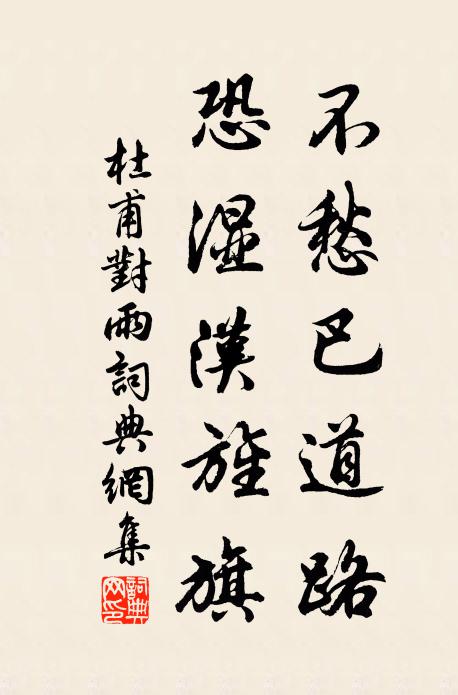 不愁巴道路
恐湿漢旌旗
杜甫對雨詞典網集
詞典
网印